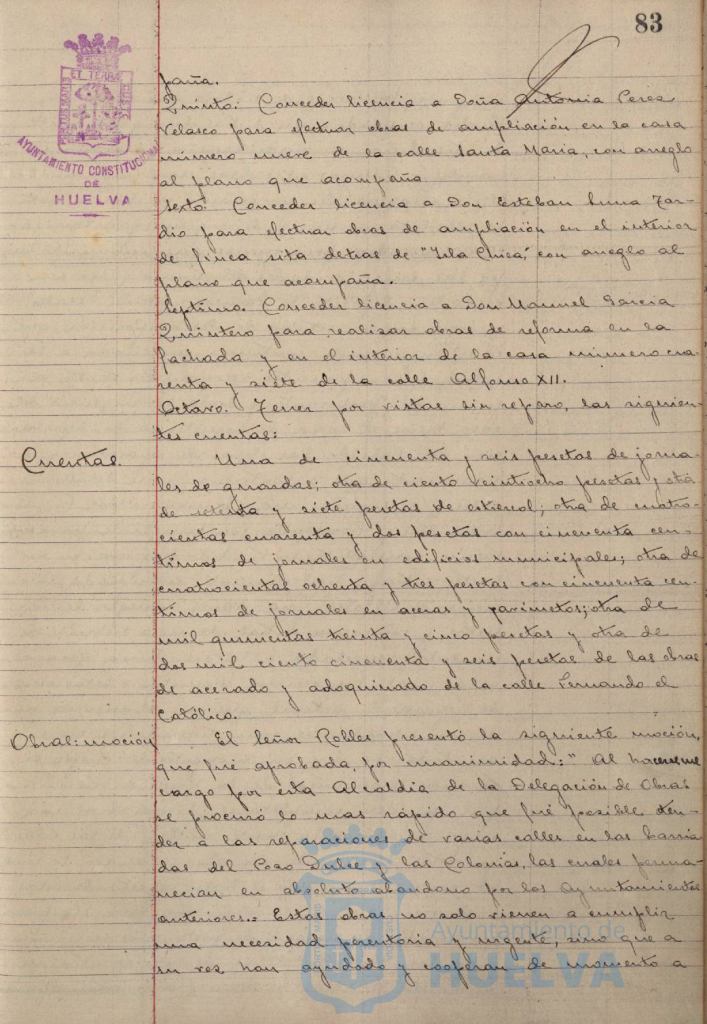 83
ET TERRÆ
AYUNTAMIENTO CONSTITUCIONAL
DE
HUELVA
paña.
Quinto. Conceder licencia a Doña Antonia Perea
Velasco para efectuar obras de ampliación en la casa
número nueve de la calle Santa María, con arreglo
al plano que acompaña
Sexto. Conceder licencia a Don Esteban Luna Zar-
dio para efectuar obras de ampliación en el interior
de finca sita detras de "Isla Chica", con arreglo al
plano que acompaña.
Septimo. Conceder licencia a Don Manuel Garcia
Quintero para realizar obras de reforma en la
fachada y en el interior de la casa número cua-
renta y siete de la calle Alfonso XII.
Octavo. Tener por vistas sin reparo, las siguien-
tes cuentas:
Cuentas. Una de cincuenta y seis pesetas de jorna-
les de guardas; otra de ciento veintiocho pesetas y otra
de setenta y siete pesetas de estiercol; otra de cuatro-
cientas cuarenta y dos pesetas con cincuenta cen-
timos de jornales en edificios municipales; otra de
cuatrocientas ochenta y tres pesetas con cincuenta cen-
timos de jornales en aceras y pavimetos; otra de
mil quinientas treinta y cinco pesetas y otra de
dos mil ciento cincuenta y seis pesetas de las obras
de acerado y adoquinado de la calle Fernando el
Católico.
Obras: moción El Señor Robles presentó la siguiente moción,
que fué aprobada, por unanimidad: "Al hacerme
cargo por esta Alcaldía de la Delegación de Obras
se procuró lo mas rápido que fué posible aten-
der a las reparaciones de varias calles en las barria-
das del Pozo Dulce y las Colonias, las cuales perma-
necian en absoluto abandono por los Ayuntamientos
anteriores.= Estas obras no solo vienen a cumplir
una necesidad perentoria y urgente, sino que a
su vez han ayudado y cooperan de momento a
Ayuntamiento de
HUELVA